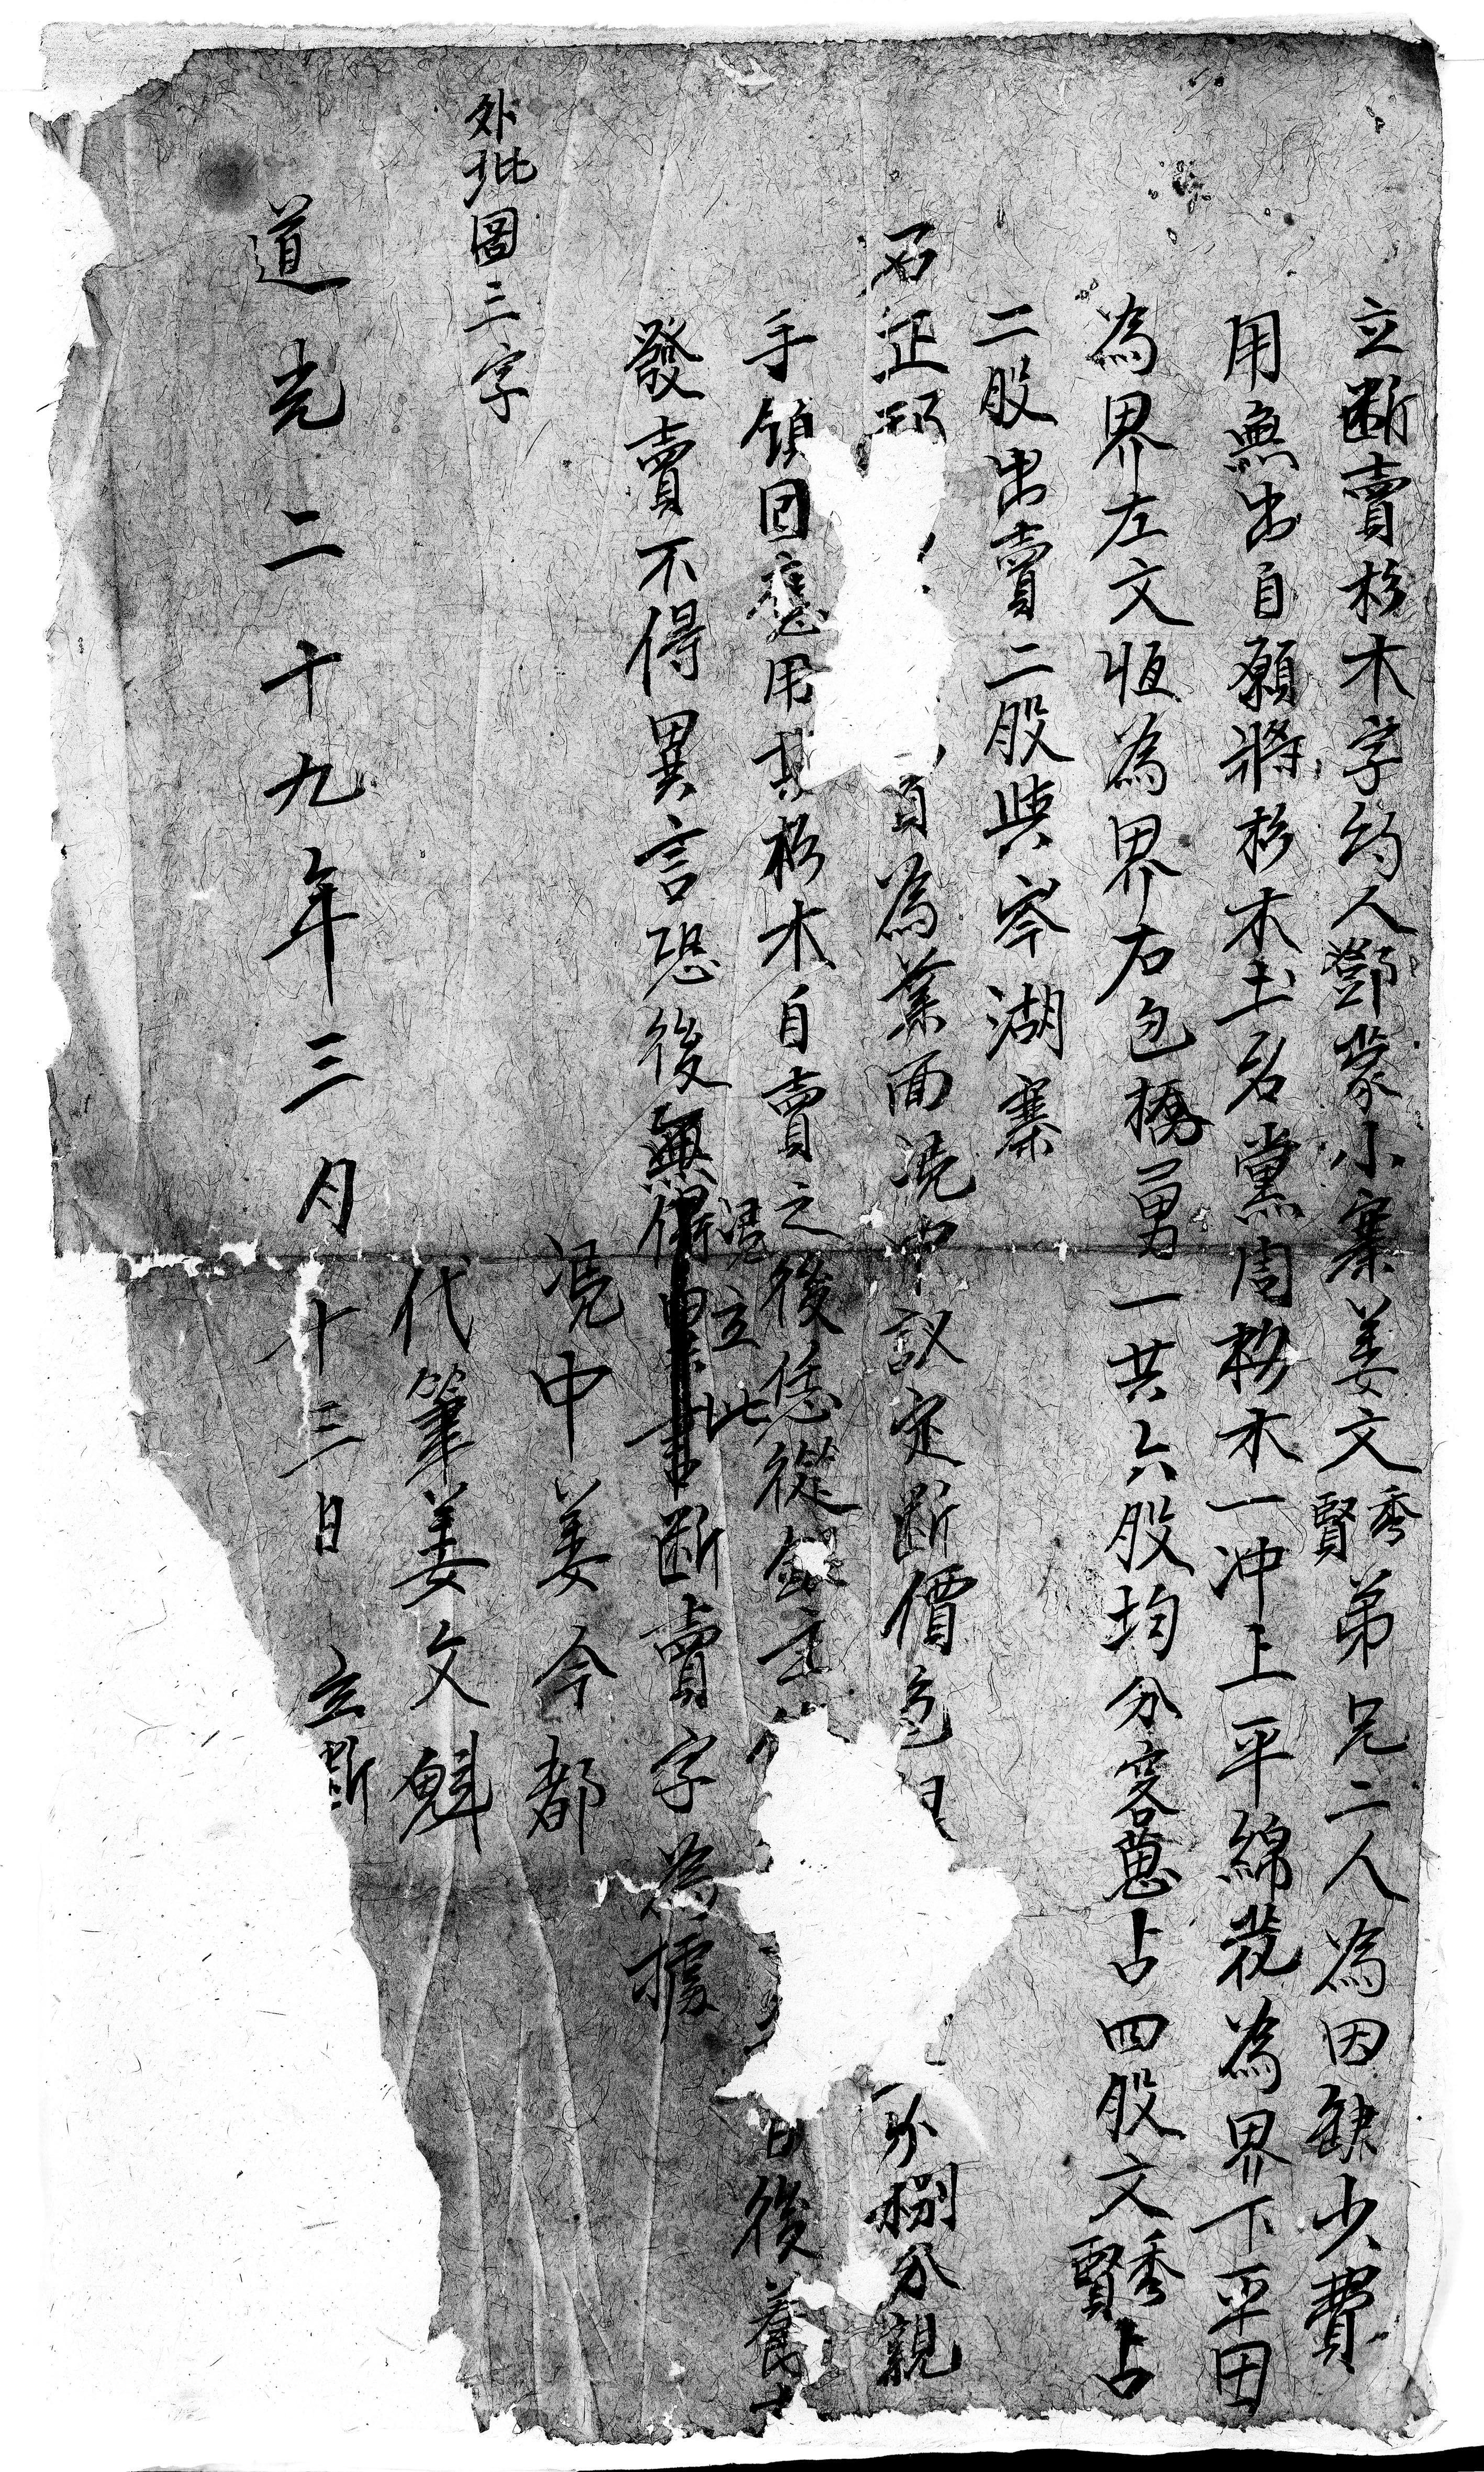 立斷賣杉木字約人鄧蒙小寨姜文秀賢弟兄二人為因缺少費
用無出自願將杉木土名黨周杉木一冲上平綿花為界下平田
為界左文恒為界右包橋勇一共六股均分客蔥占四股文秀賢占
二股出賣二股與岑湖寨
名正 為業面凴中議定斷價色 分捌分親
手領回應用其杉木自賣之後恁從銀主 日後養木
發賣不得異言恐後無憑立此斷賣字為據
外批圖三字
凴中姜今都
代筆姜文魁
道光二十九年三月十三日 立斷